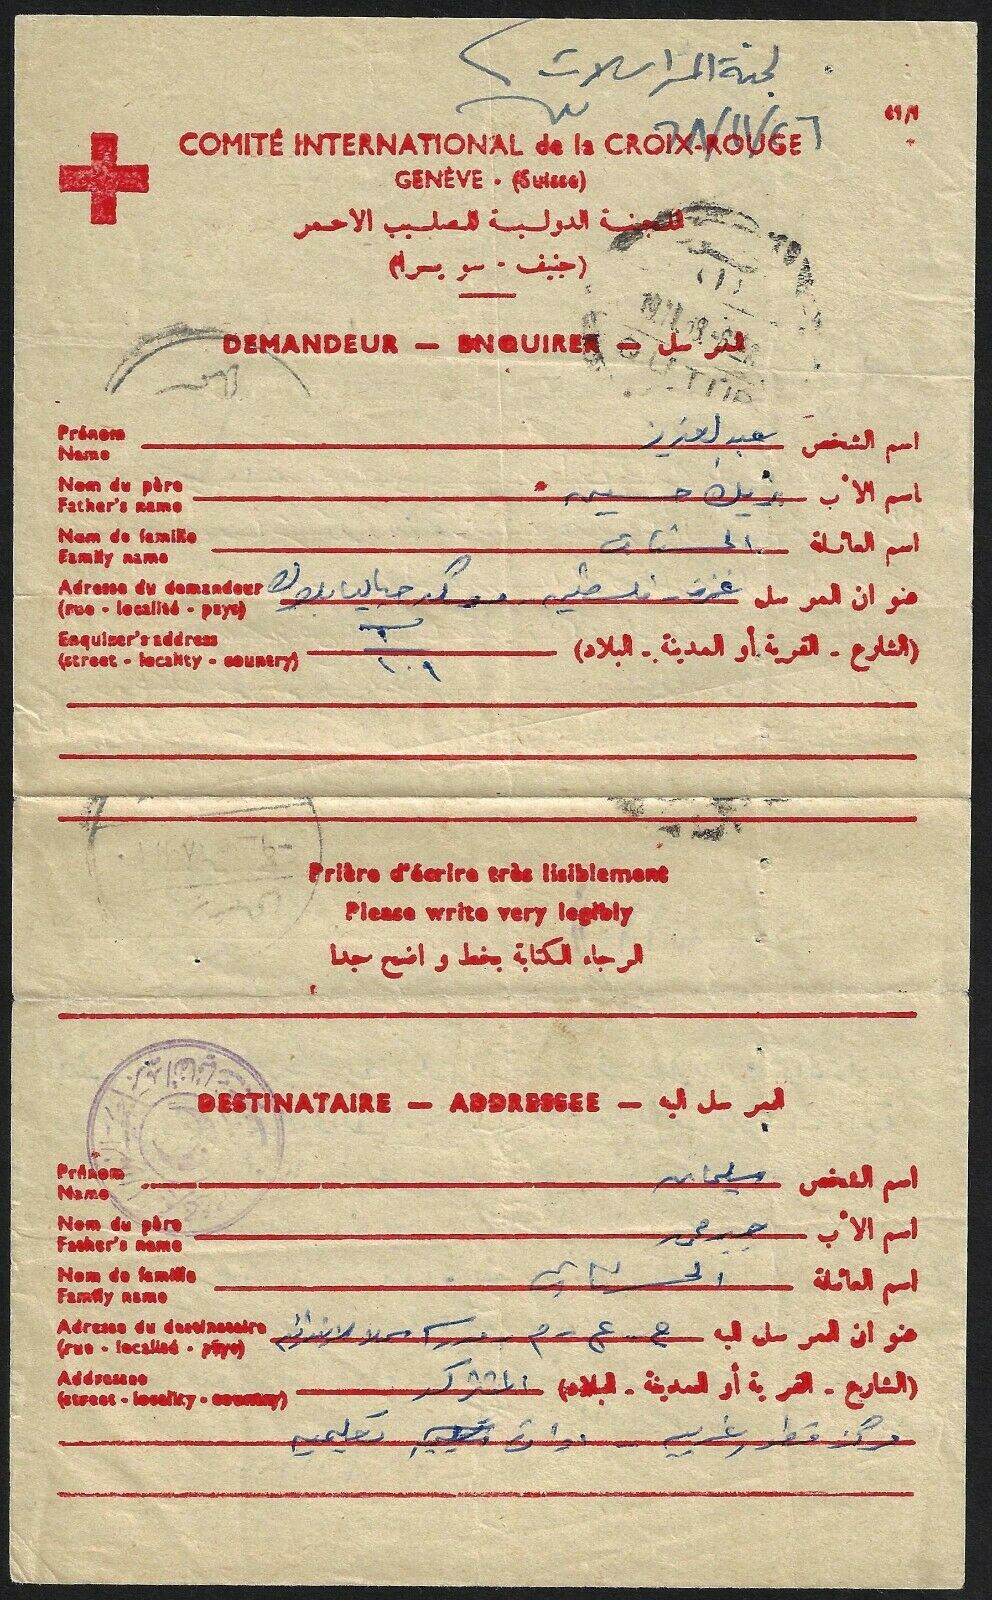 لجنة المراسلات
٦٩/٩
COMITÉ INTERNATIONAL de la CROIX-ROUGE
GENÈVE - (Suisse)
اللجنة الدولية للصليب الاحمر
(جنيف - سويسرا)
DEMANDEUR — ENQUIRER — المرسل
Prénom
Name
عبد العزيز
اسم الشخص
Nom du père
Father's name
حسين
اسم الأب
Nom de famille
Family name
اسم العائلة
Adresse du demandeur
(rue - localité - pays)
غزة - فلسطين - معسكر جباليا بلوك
عنوان المرسل
Enquirer's address
(street - locality - country)
١٠٠٩
(الشارع - القرية أو المدينة - البلاد)
Prière d'écrire très lisiblement
Please write very legibly
الرجاء الكتابة بخط واضح جدا
DESTINATAIRE — ADDRESSEE — المرسل اليه
Prénom
Name
سليمان
اسم الشخص
Nom du père
Father's name
اسم الأب
Nom de famille
Family name
اسم العائلة
Adresse du destinataire
(rue - localité - pays)
ج - ع - م -
عنوان المرسل اليه
Addressee
(street - locality - country)
المشتركة
(الشارع - القرية أو المدينة - البلاد)
مركز قطور غربية - ادارة
تعليمية